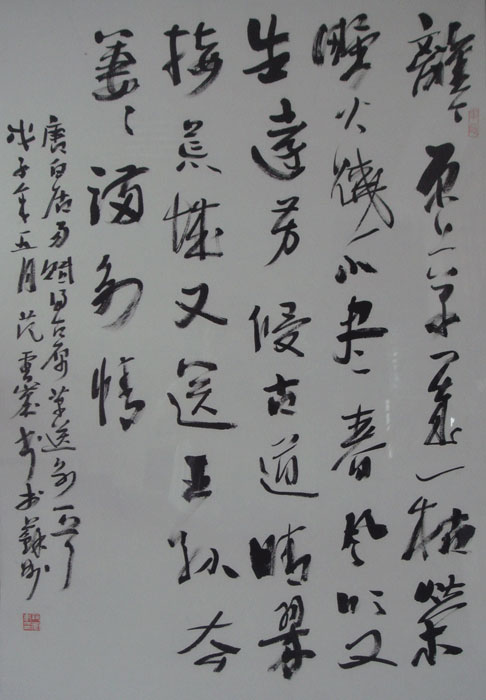 離々原上草一歲一枯榮
野火燒不盡春風吹又
生遠芳侵古道晴翠
接荒城又送王孙去
萋々满别情
唐白居易賦得古原草送别一首
戊子年五月范书於蘇州